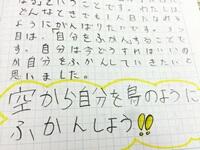 なる」ということです。わたしは、
どんなときでも1人目になれるよ
うにがんばりたいです。3つ
目は、「自分をふかんすることで
す。自分は今どうすればいいの
か自分をふかんしていきたいと
思いました。
空から自分を鳥のように
ふかんしよう!!